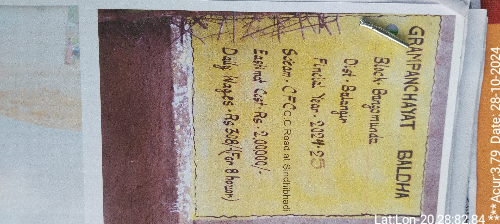 GRAMPANCHAYAT BALDHA
Block- Bangomunda
Dist- Balangir
Financial Year- 2024-25
Scheam- CFC C.C Road at Sindhibhadi
Easti
Cost- Rs- 2,00,000/-
Daily Wages- Rs 308/-(For 8 hour)
Lat:Lon-20.28:82.84
Date:28-10-2024